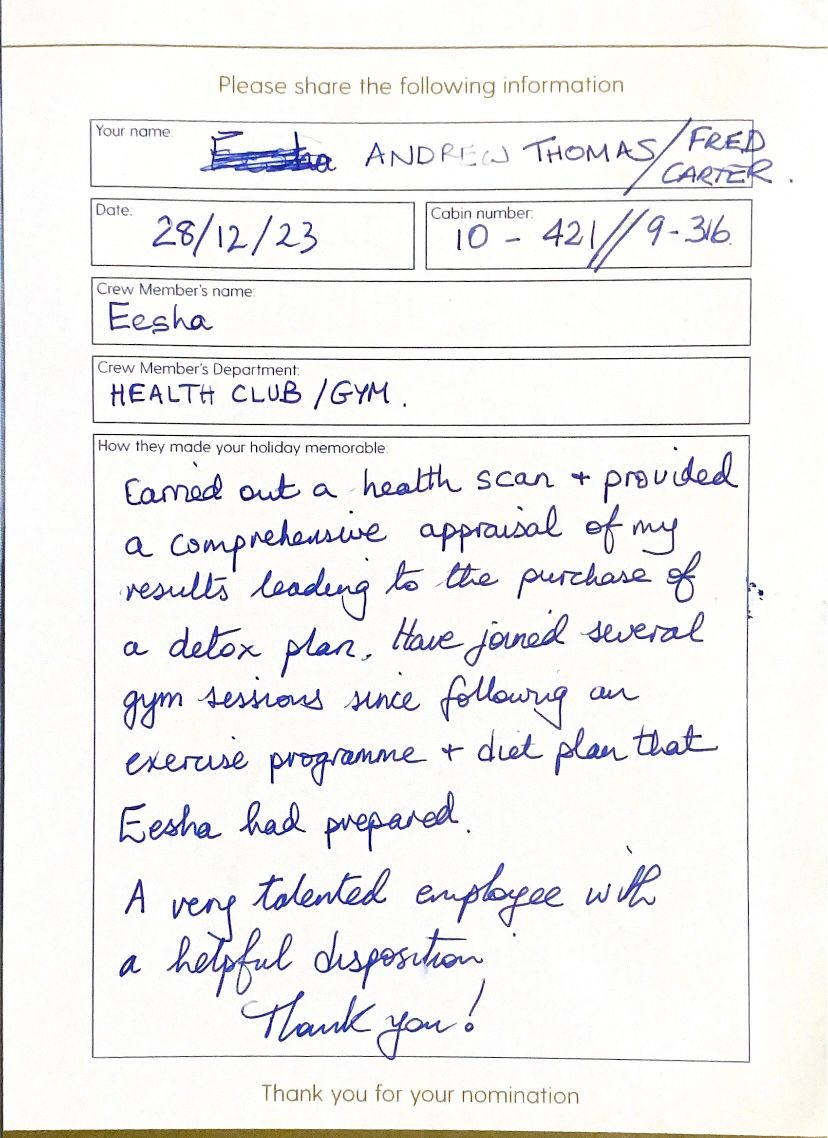 Please share the following information
Your name:
Eesha ANDREW THOMAS / FRED
CARTER.
Date:
28/12/23
Cabin number:
10 - 421 // 9-316.
Crew Member's name:
Eesha
Crew Member's Department:
HEALTH CLUB / GYM.
How they made your holiday memorable:
Carried out a health scan + provided
a comprehensive appraisal of my
results leading to the purchase of
a detox plan. Have joined several
gym sessions since following an
exercise programme + diet plan that
Eesha had prepared.
A very talented employee with
a helpful disposition
Thank you!
Thank you for your nomination